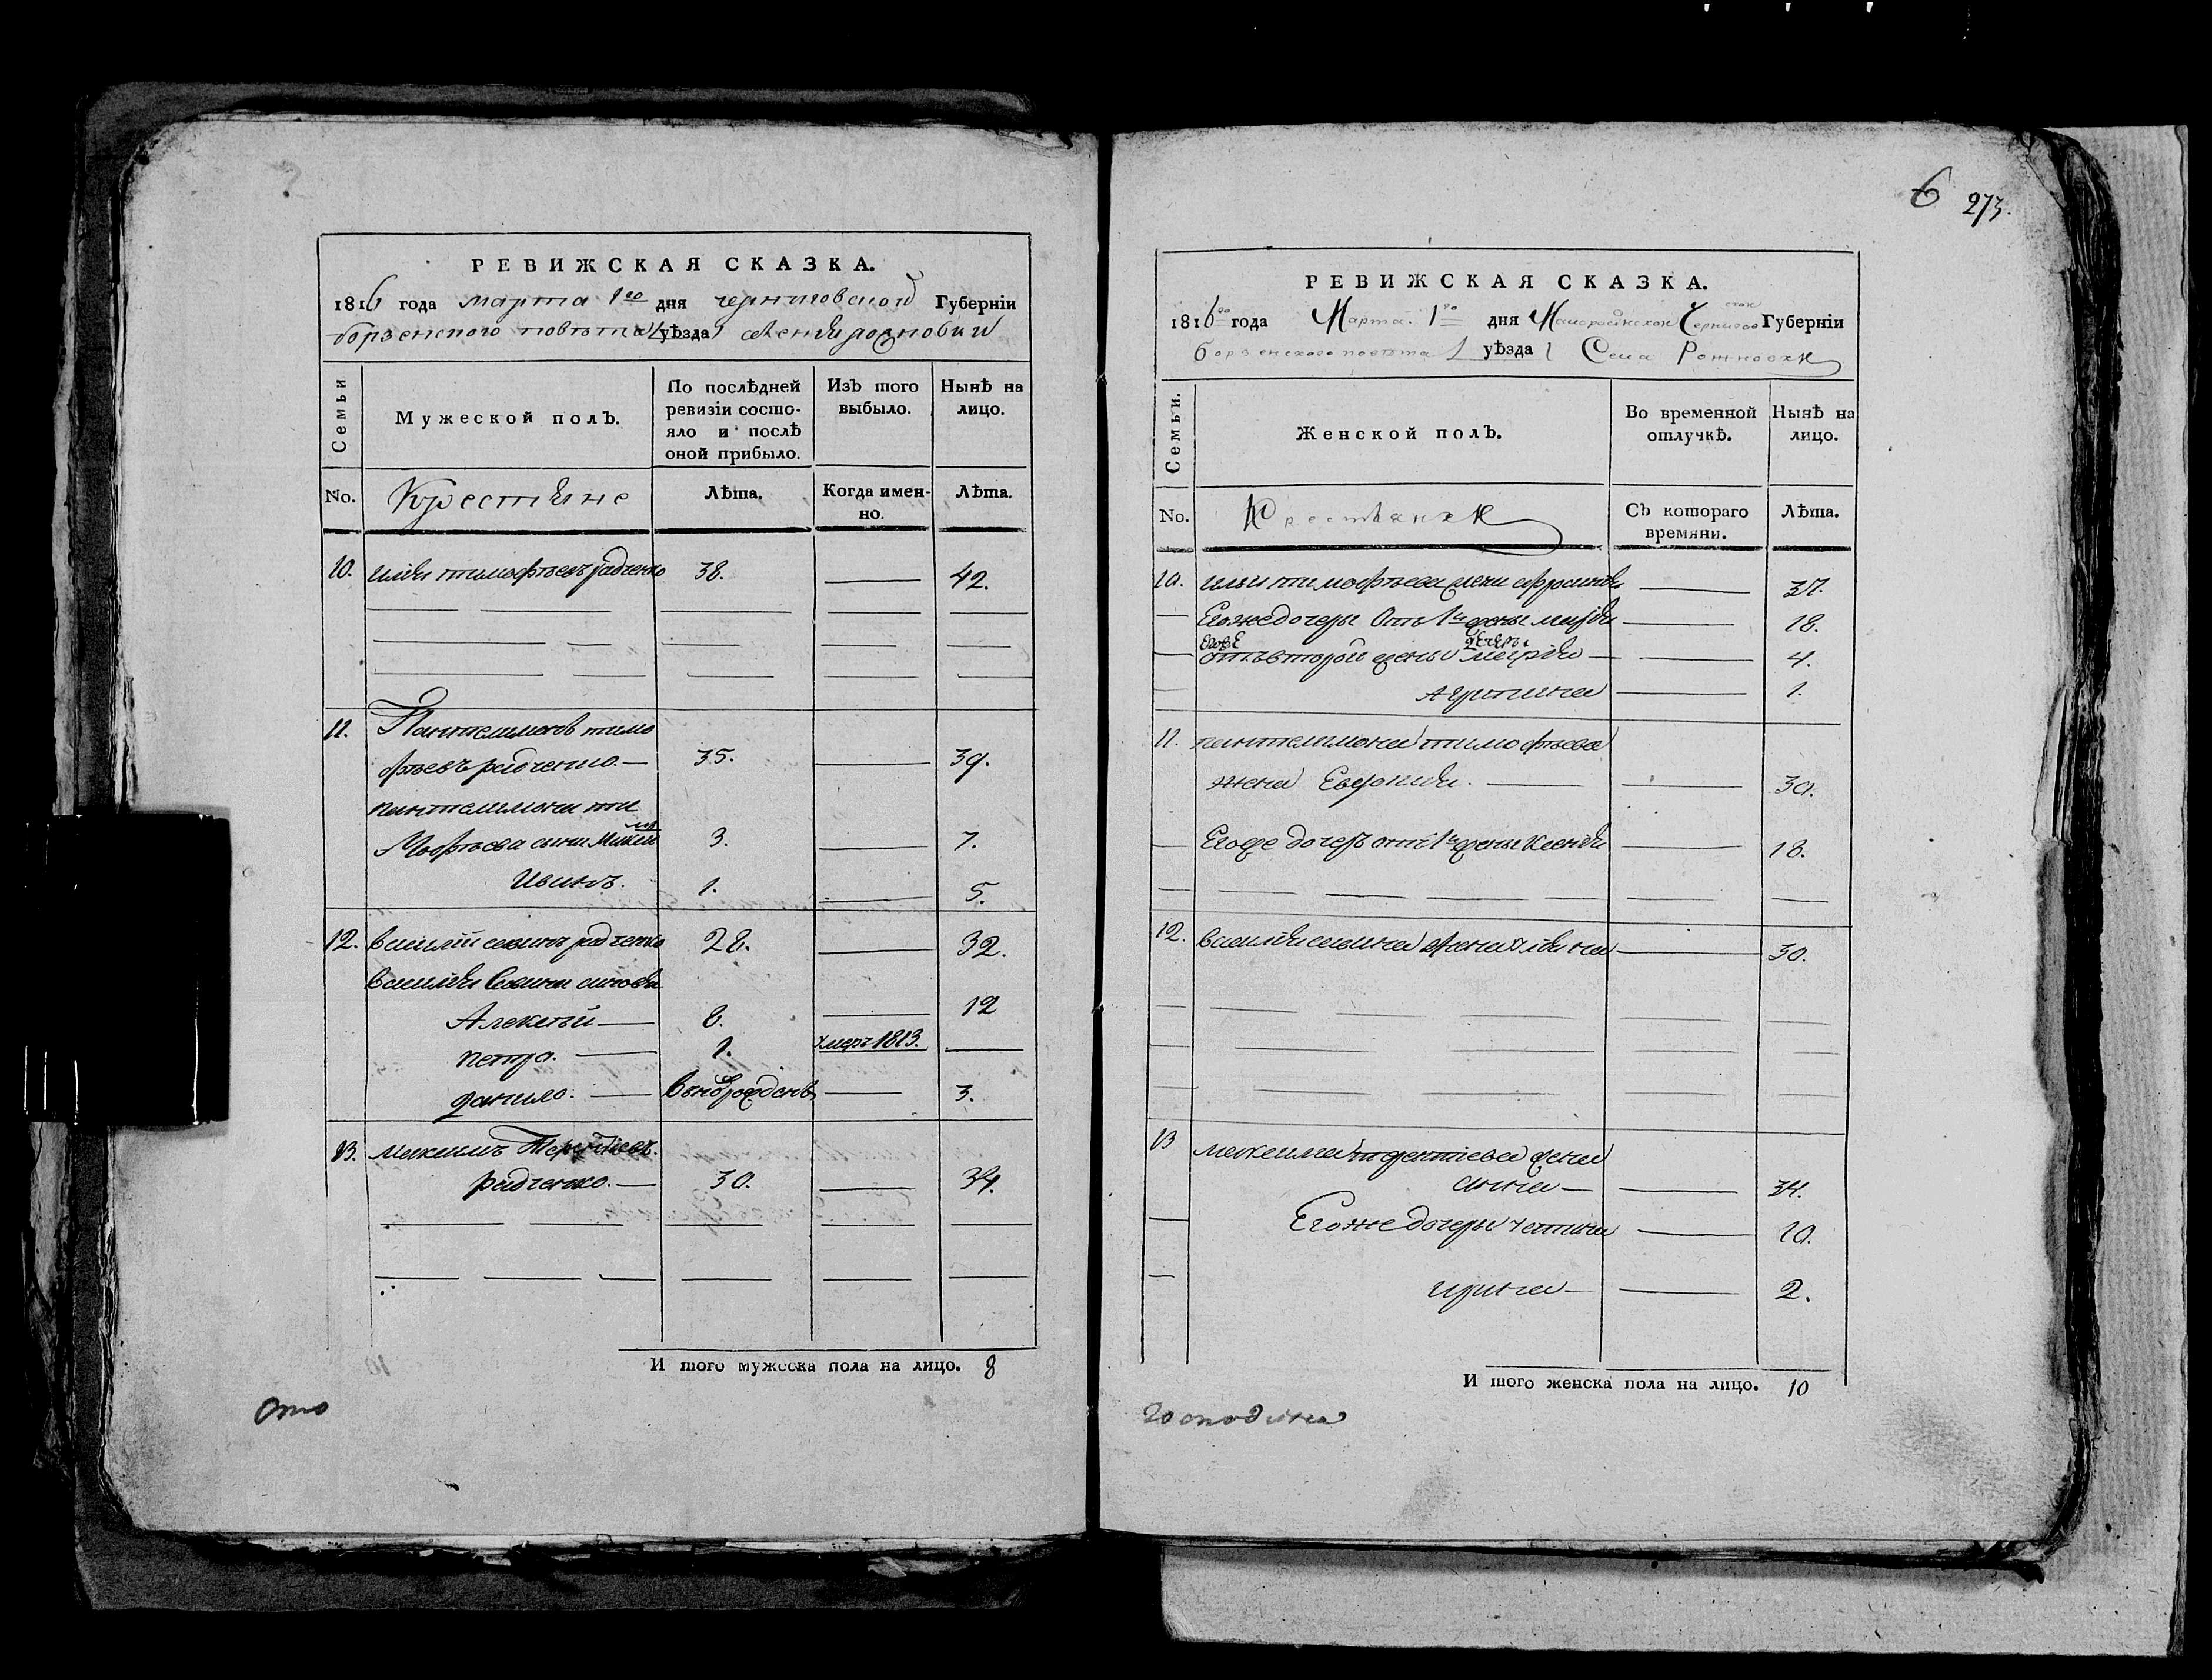 РЕВИЖСКАЯ СКАЗКА.
1816 года марта 1го дня черниговской Губерніи
борзенского повѣта уѣзда
Семьи
Мужеской полъ.
По послѣдней ревизіи состояло и послѣ оной прибыло.
Изъ того выбыло.
Нынѣ на лицо.
No. Крестяне Лѣта. Когда именно. Лѣта.
10. илия тимофѣевъ радченко 38. 42.
11. Пантелимонъ тимо
фѣевъ радченко. 35. 39.
пантелимона ти
мофѣева сыни 3. 7.
Иванъ. 1. 5.
12. василій савинъ радченко 28. 32.
василия савина
Алексѣй 8. 12
петро. 1. умеръ 1813.
данило. 3.
13. максимъ Терентіевъ.
радченко. 30. 34.
И того мужеска пола на лицо. 8
Отто
6 273.
РЕВИЖСКАЯ СКАЗКА.
1816го года Марта 1го дня Малоросійской Черниговской Губерніи
борзенского повѣта уѣзда Села Рожновки
Семьи.
Женской полъ.
Во временной отлучкѣ.
Нынѣ на лицо.
No. Крестянки Съ котораго времяни. Лѣта.
10. ильи тимофѣева жена 37.
Егоже дочеры Отъ 1й жены марья 18.
Егоже дочеръ
отъ второй жены 4.
Агрипина 1.
11. пантелимона тимофѣева
жена Евдокия. 30.
Егоже дочеръ отъ 1й жены Ксения 18.
12. василия савина жена улияна 30.
13 максима жена
анна 34.
Егоже дочеры 10.
ирина 2.
И того женска пола на лицо. 10
господина